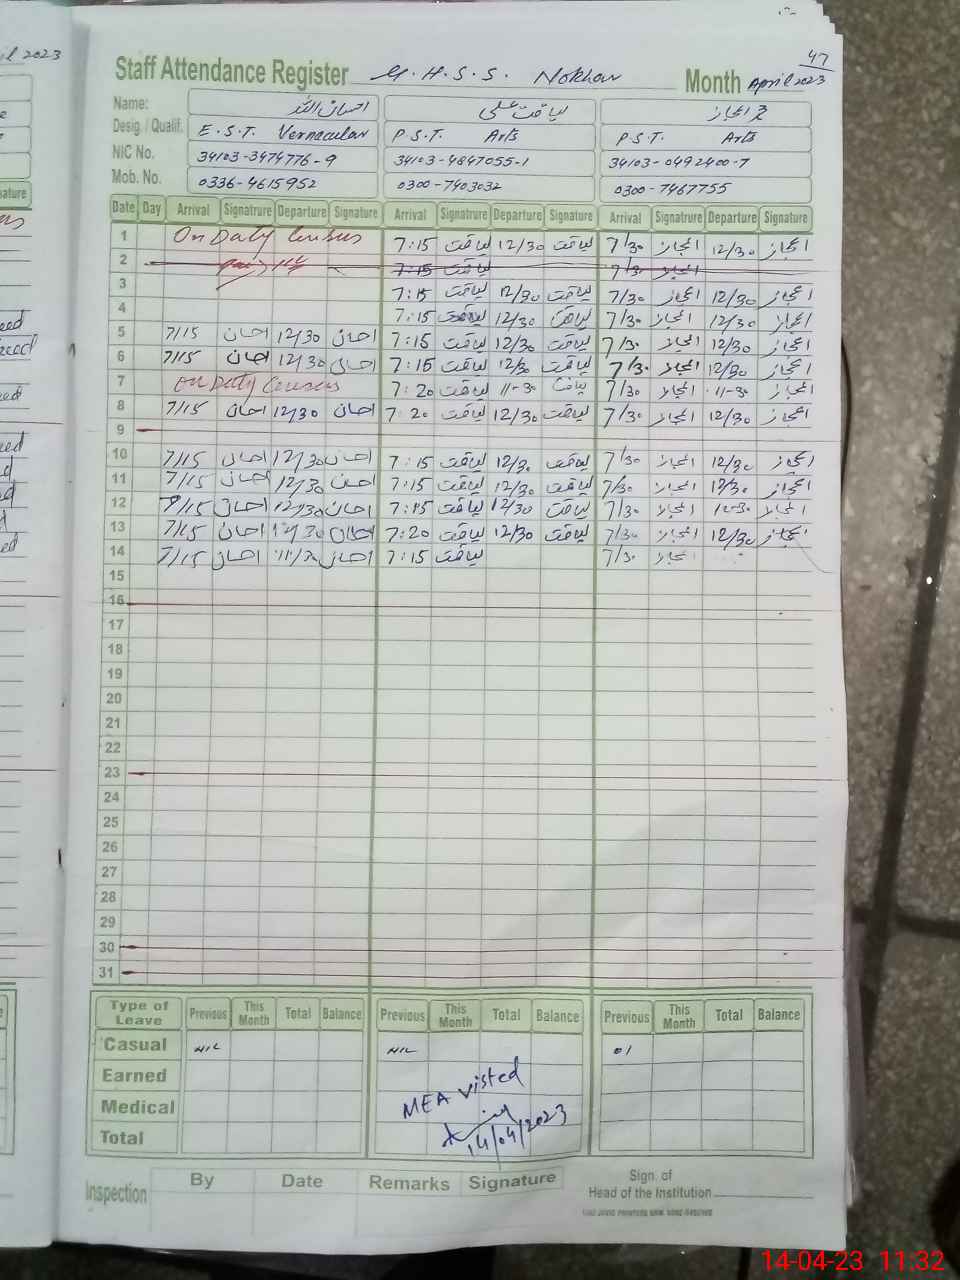 47
Staff Attendance Register G.H.S.S. Nokhar Month April 2023
Name: احسان اللہ لیاقت علی محمد اعجاز
Desig. / Qualif. E.S.T. Vernacular P.S.T. Arts P.S.T. Arts
NIC No. 34103-3474776-9 34103-4847055-1 34103-0492400-7
Mob. No. 0336-4615952 0300-7403032 0300-7467755
Date Day Arrival Signatrure Departure Signature Arrival Signatrure Departure Signature Arrival Signatrure Departure Signature
1 On Duty Census 7:15 لیاقت 12/30 لیاقت 7/30 اعجاز 12/30 اعجاز
2 7:15 لیاقت 7/30 اعجاز
3 7:15 لیاقت 12/30 لیاقت 7/30 اعجاز 12/30 اعجاز
4 7:15 لیاقت 12/30 لیاقت 7/30 اعجاز 12/30 اعجاز
5 7/15 احسان 12/30 احسان 7:15 لیاقت 12/30 لیاقت 7/30 اعجاز 12/30 اعجاز
6 7/15 احسان 12/30 احسان 7:15 لیاقت 12/30 لیاقت 7/30 اعجاز 12/30 اعجاز
7 On Duty Census 7:20 لیاقت 11-30 لیاقت 7/30 اعجاز 11-30 اعجاز
8 7/15 احسان 12/30 احسان 7:20 لیاقت 12/30 لیاقت 7/30 اعجاز 12/30 اعجاز
9
10 7/15 احسان 12/30 احسان 7:15 لیاقت 12/30 لیاقت 7/30 اعجاز 12/30 اعجاز
11 7/15 احسان 12/30 احسان 7:15 لیاقت 12/30 لیاقت 7/30 اعجاز 12/30 اعجاز
12 7/15 احسان 12/30 احسان 7:15 لیاقت 12/30 لیاقت 7/30 اعجاز 12-30 اعجاز
13 7/15 احسان 12/30 احسان 7:20 لیاقت 12/30 لیاقت 7/30 اعجاز 12/30 اعجاز
14 7/15 احسان احسان 7:15 لیاقت 7/30 اعجاز
15
16
17
18
19
20
21
22
23
24
25
26
27
28
29
30
31
Type of Leave Previous This Month Total Balance Previous This Month Total Balance Previous This Month Total Balance
Casual NIL NIL 01
Earned
Medical
Total
MEA visted
14/04/2023
Inspection By Date Remarks Signature
Sign. of
Head of the Institution
14-04-23 11:32